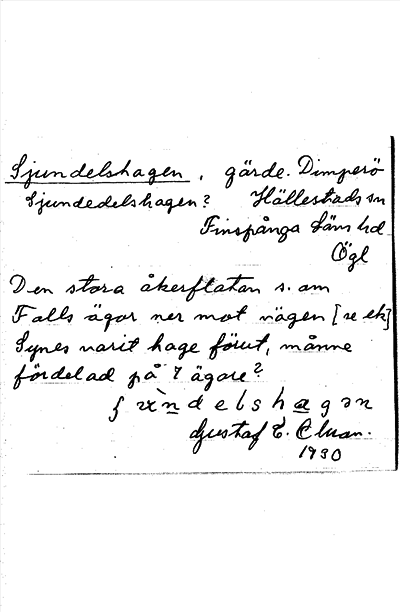 Sjundelshagen, gärde. Dimperö
Sjundedelshagen? Hällestads sn
Finspånga läns hd
Ögl
Den stora åkerflatan s. om
Falls ägor ner mot vägen [se ek]
Synes varit hage förut, månne
fördelad på 7 ägare?
delshagən
Gustaf E.
1930